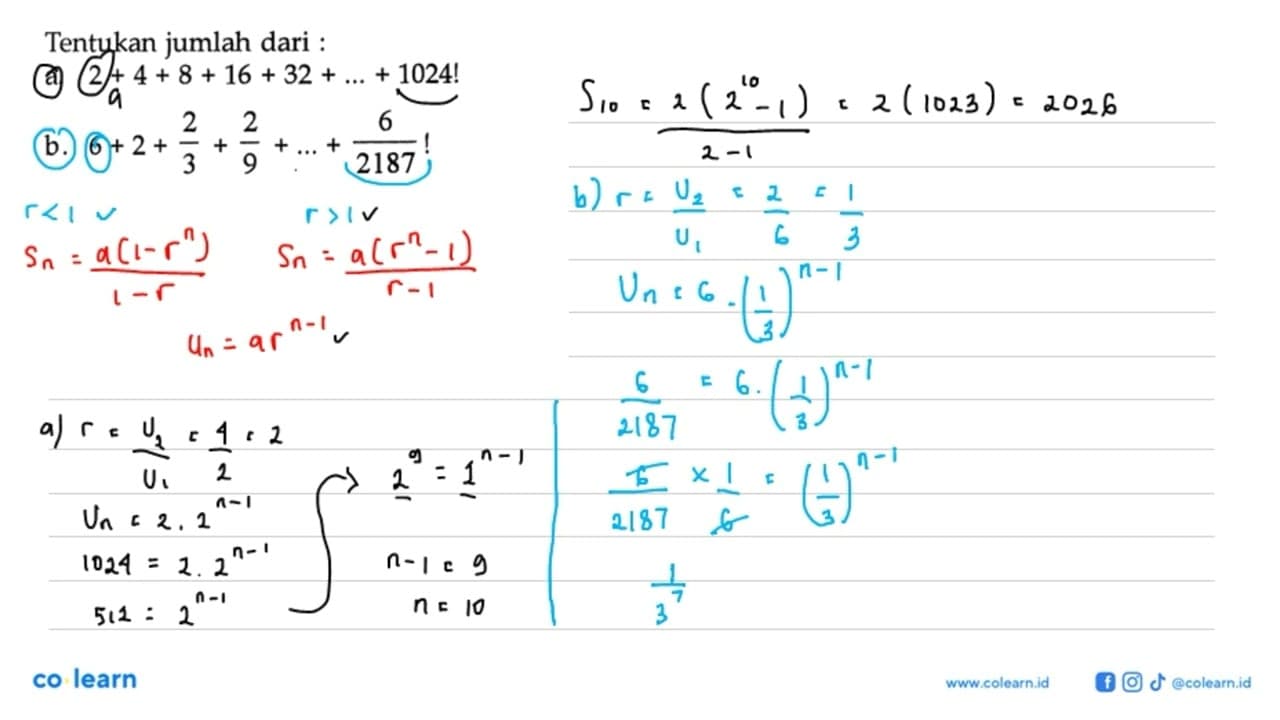 Tentukan jumlah dari :
a 2 + 4 + 8 + 16 + 32 + ... + 1024!
a
b. 6 + 2 + 2/3 + 2/9 + ... + 6/2187 !
r < 1 ✓ r > 1 ✓
Sn = a(1 - r^n) / 1 - r Sn = a(r^n - 1) / r - 1
Un = ar^n-1 ✓
a) r = U2/U1 = 4/2 = 2
Un = 2 . 2^n-1
1024 = 2 . 2^n-1
512 = 2^n-1
2^9 = 2^n-1
n - 1 = 9
n = 10
S10 = 2(2^10 - 1) / 2 - 1 = 2(1023) = 2026
b) r = U2/U1 = 2/6 = 1/3
Un = 6 . (1/3)^n-1
6/2187 = 6 . (1/3)^n-1
6/2187 × 1/6 = (1/3)^n-1
1/3^7
co learn
www.colearn.id @colearn.id